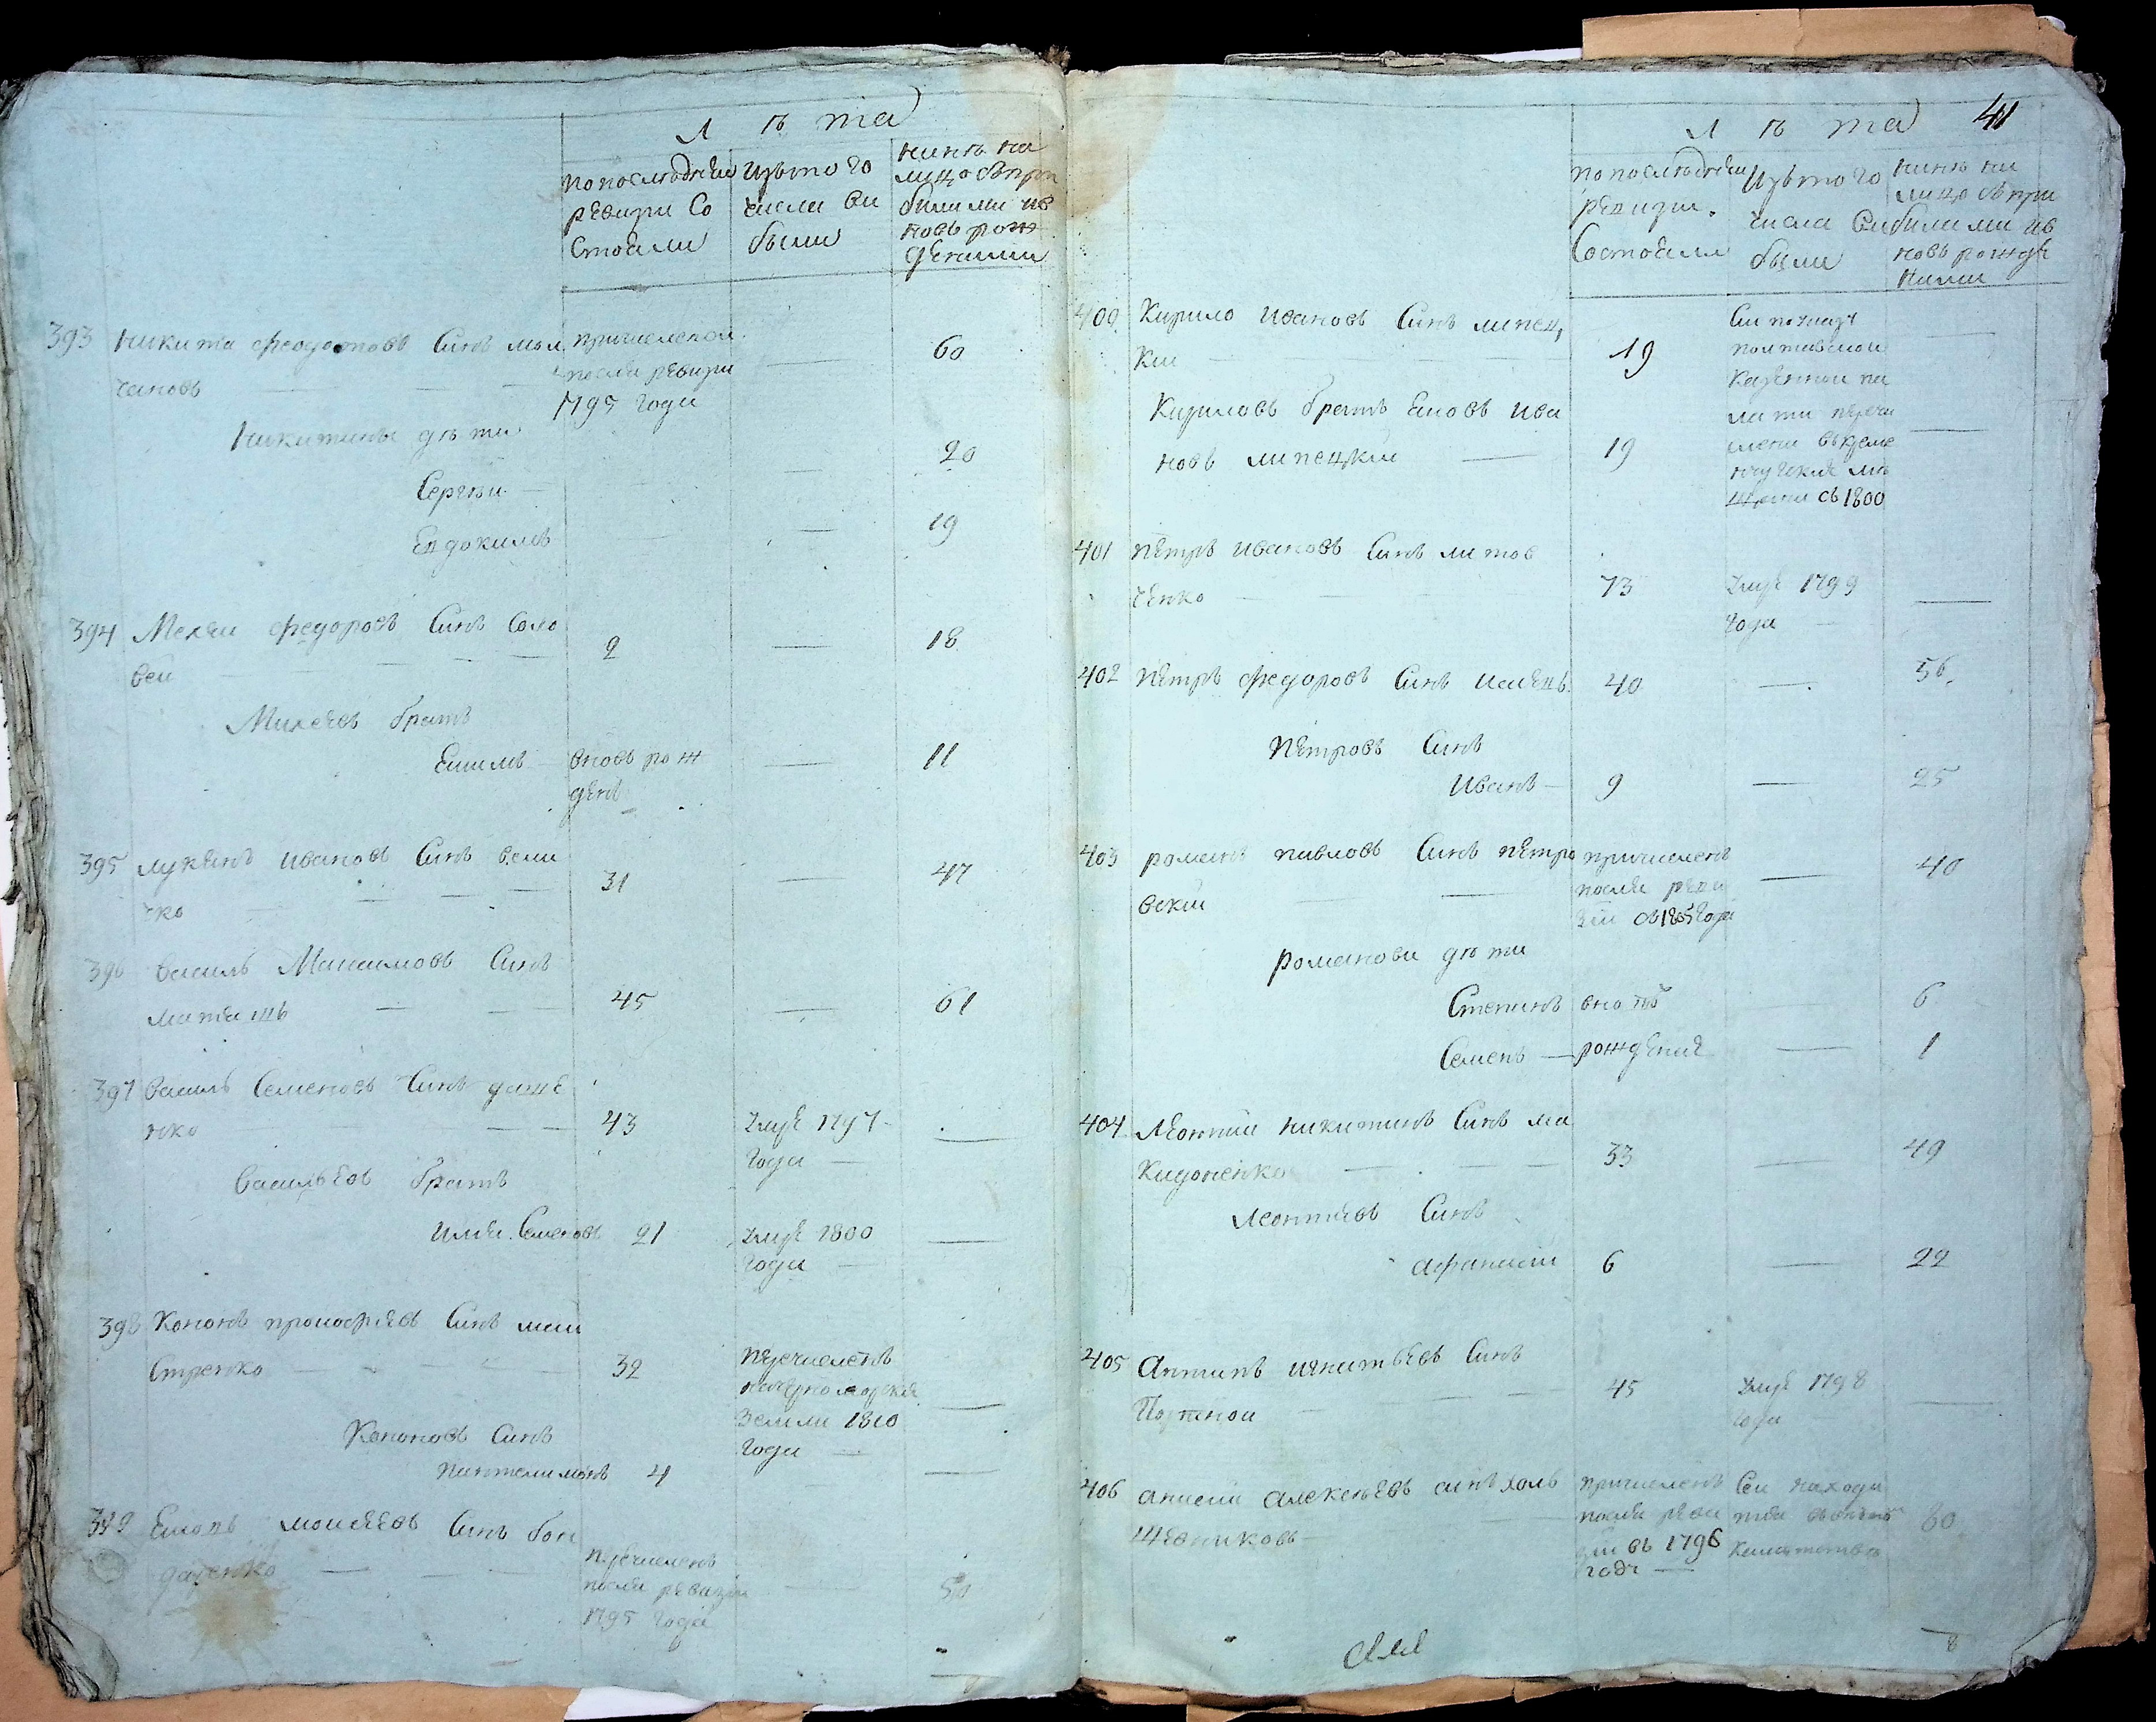 Л ѣ та
по последней
ревизіи Со
Стояли
Изъ того
числа вы
были
ныне на
лицо съ при
былыми и в
новь рож
денными
393 Никита Федотовъ Синъ мол
чановъ
причисленои
после ревизіи
1795 года
60
Никитины дѣти
Сергѣи
20
Евдокимъ
19
394 Михеи Федоровъ Синъ Соло
веи
2
18
Михеевъ братъ
Екимъ
вновь рож
денъ
11
395 Лукянъ Ивановъ Синъ вели
чко
31
47
396 василь Максимовъ Синъ
45
61
397 василь Семеновъ Синъ даше
нко
43
умре 1797
года
Васильевъ братъ
Илья Семеновъ 21
умре 1800
года
398 Кононъ прокофіевъ Синъ
Стренко
32
перечисленъ
на черноморские
Земли 1810
года
Кононовъ Синъ
Пантелимонъ 4
399 моисеевъ Синъ бон
даренко
перечисленъ
после ревизіи
1795 года
Л ѣ та
41
по последней
ревизіи.
Состояли
Изъ того
числа вы
были
ныне на
лицо съ при
былыми и в
новь рожде
ными
400 Кирило Ивановъ Синъ липец
кии
19
Сии по указу
полтавскои
Казеннои па
латы перечи
слены въ креме
нчугские мѣ
щане съ 1800
Кириловъ братъ Ива
новъ липецкии
19
401 Петръ Ивановъ Синъ литов
ченко
73
умре 1799
года
402 Петръ Федоровъ Синъ
40
56
Петровъ Синъ
Иванъ
9
25
403 романъ павловъ Синъ петро
вскии
причисленъ
после реви
зіи съ 1805 года
40
Романови дѣти
Степанъ
вновь
6
Семенъ
рождения
1
404 Леонтии Никитинъ Синъ ма
кидоненко
33
49
Леонтиевъ Синъ
Афанасии
6
22
405 Антипъ игнатьевъ Синъ
45
умре 1798
года
406 Алексеевъ синъ холь
щевниковъ
причисленъ
после реви
зіи въ 1796
годе
Сеи находи
тся
60